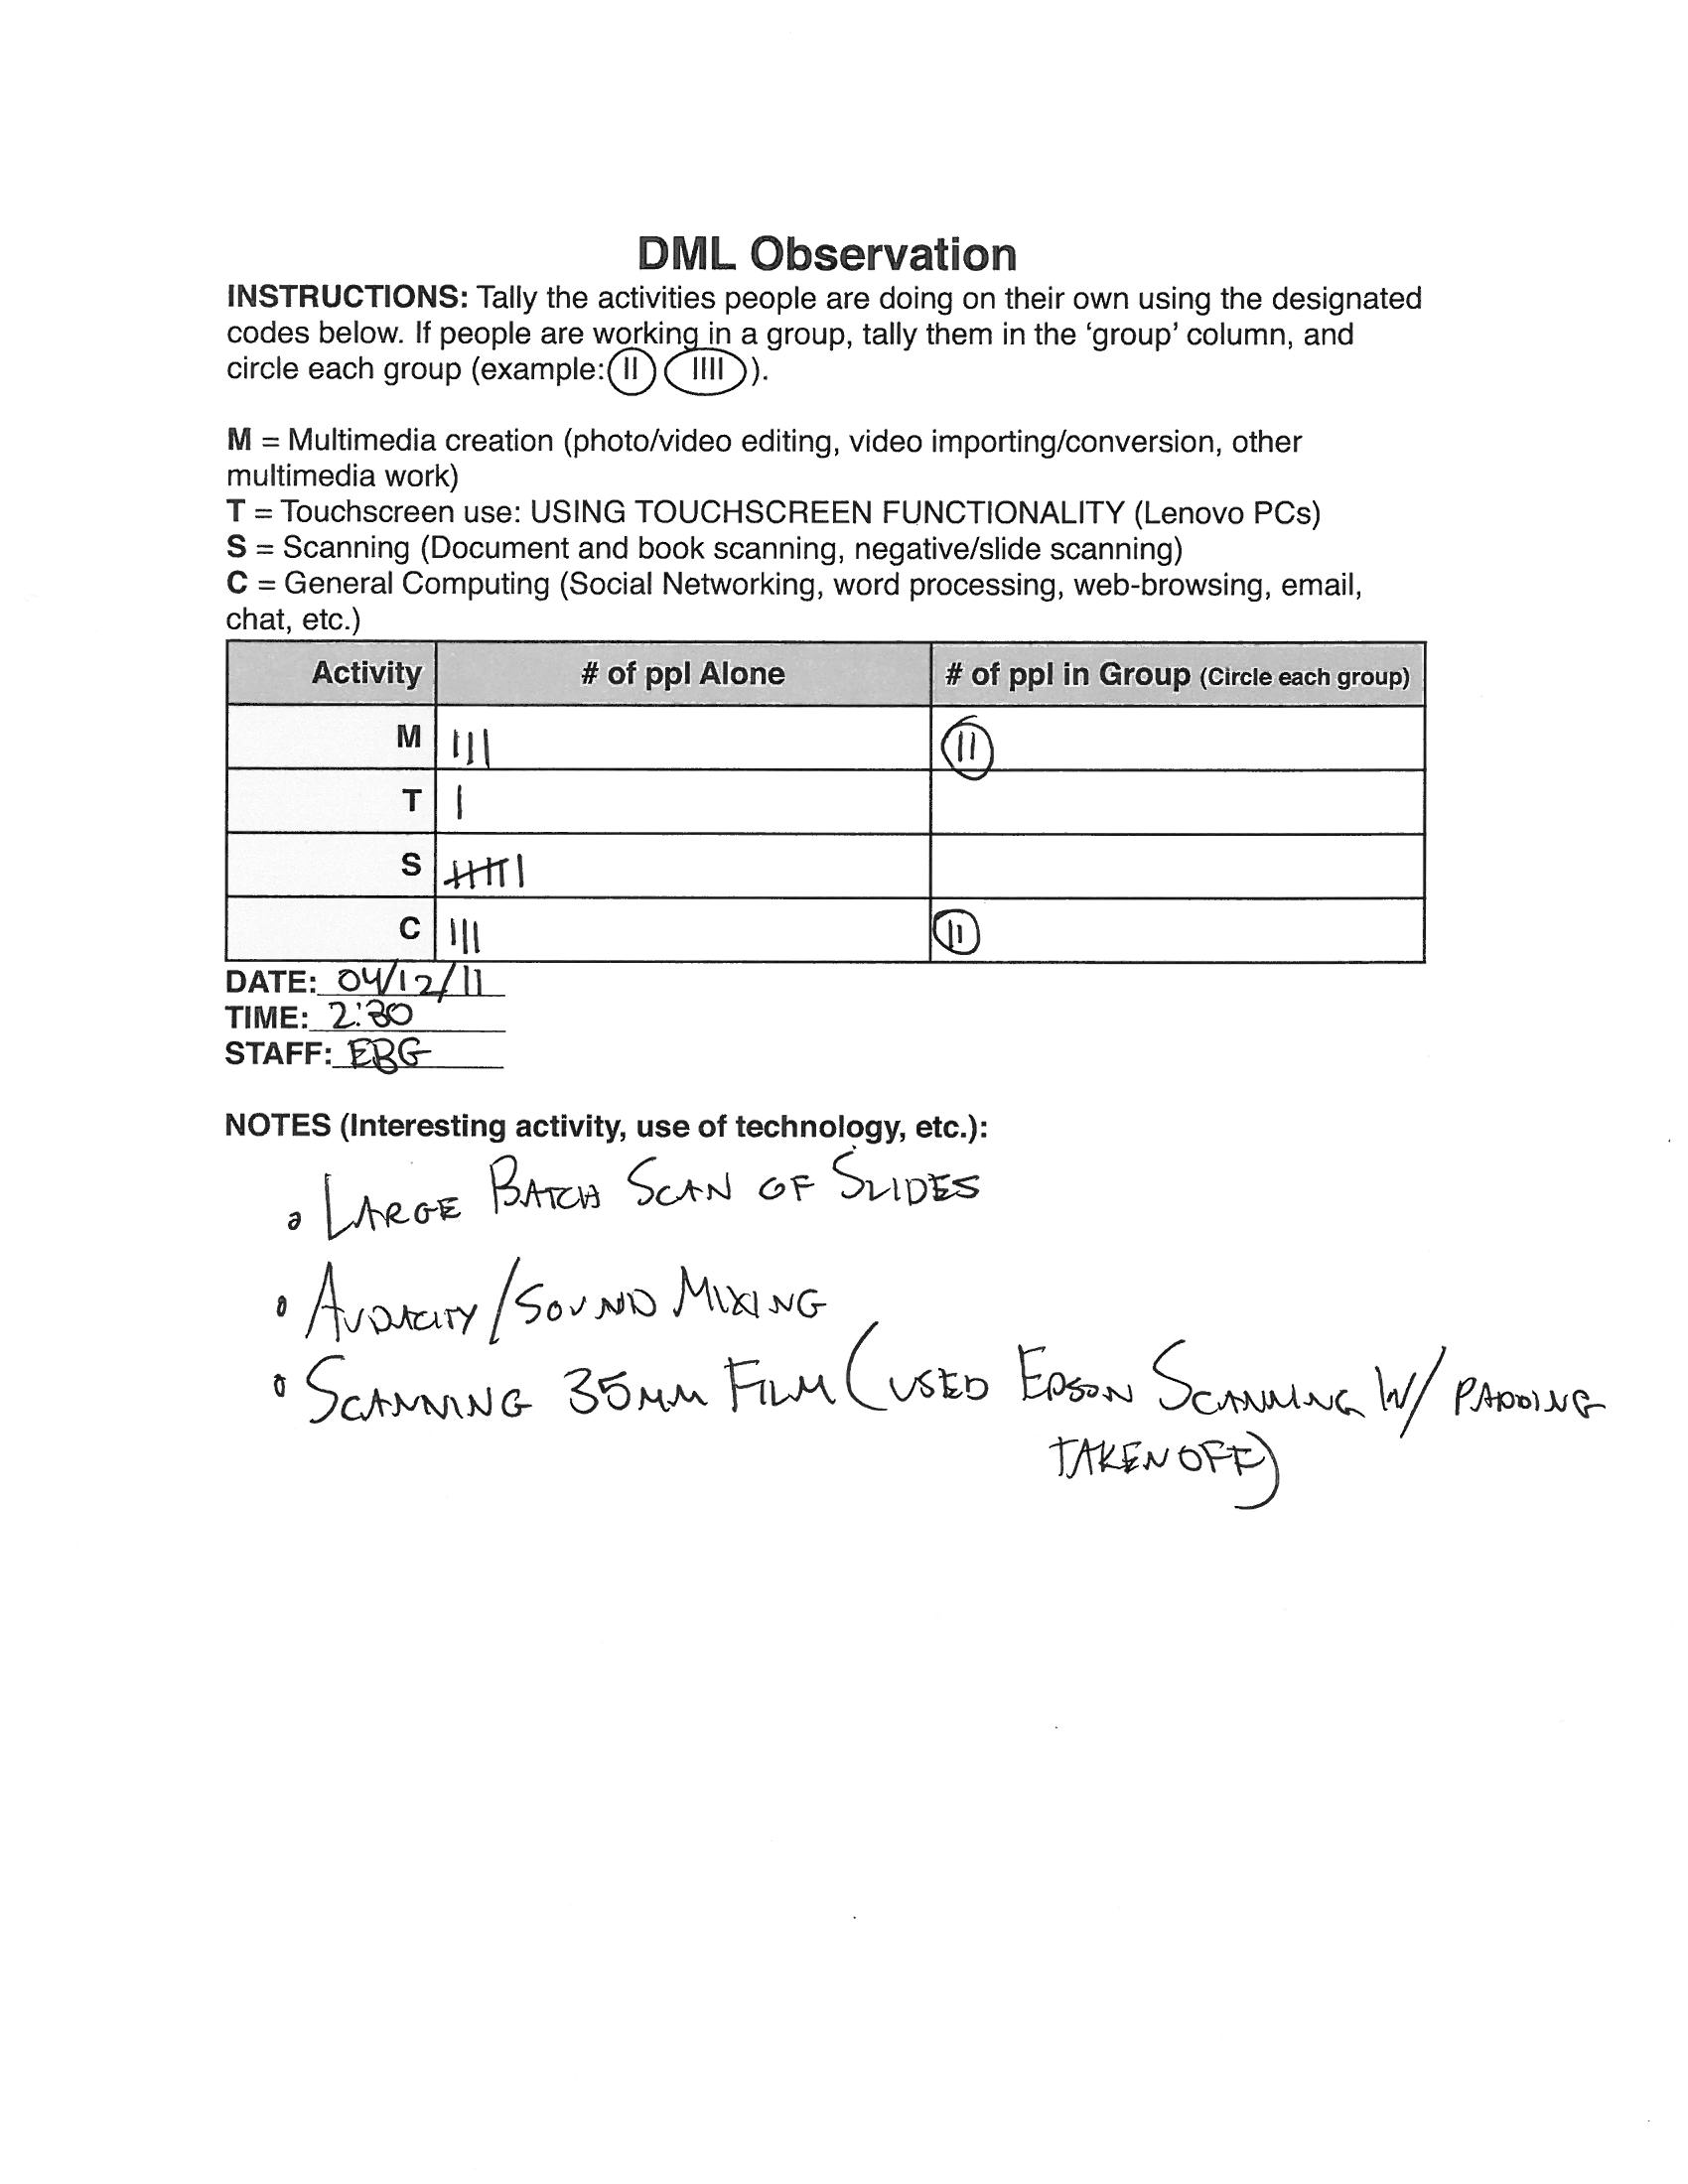 DML Observation
INSTRUCTIONS: Tally the activities people are doing on their own using the designated
codes below. If people are working in a group, tally them in the 'group' column, and
circle each group (example: II IIII ).
M = Multimedia creation (photo/video editing, video importing/conversion, other
multimedia work)
T = Touchscreen use: USING TOUCHSCREEN FUNCTIONALITY (Lenovo PCs)
S = Scanning (Document and book scanning, negative/slide scanning)
C = General Computing (Social Networking, word processing, web-browsing, email,
chat, etc.)
Activity # of ppl Alone # of ppl in Group (Circle each group)
M III II
T I
S IIIII I
C III II
DATE: 04/12/11
TIME: 2:30
STAFF: EBG
NOTES (Interesting activity, use of technology, etc.):
• LARGE BATCH SCAN OF SLIDES
• AUDACITY/SOUND MIXING
• SCANNING 35MM FILM (USED EPSON SCANNING W/ PADDING
TAKEN OFF)